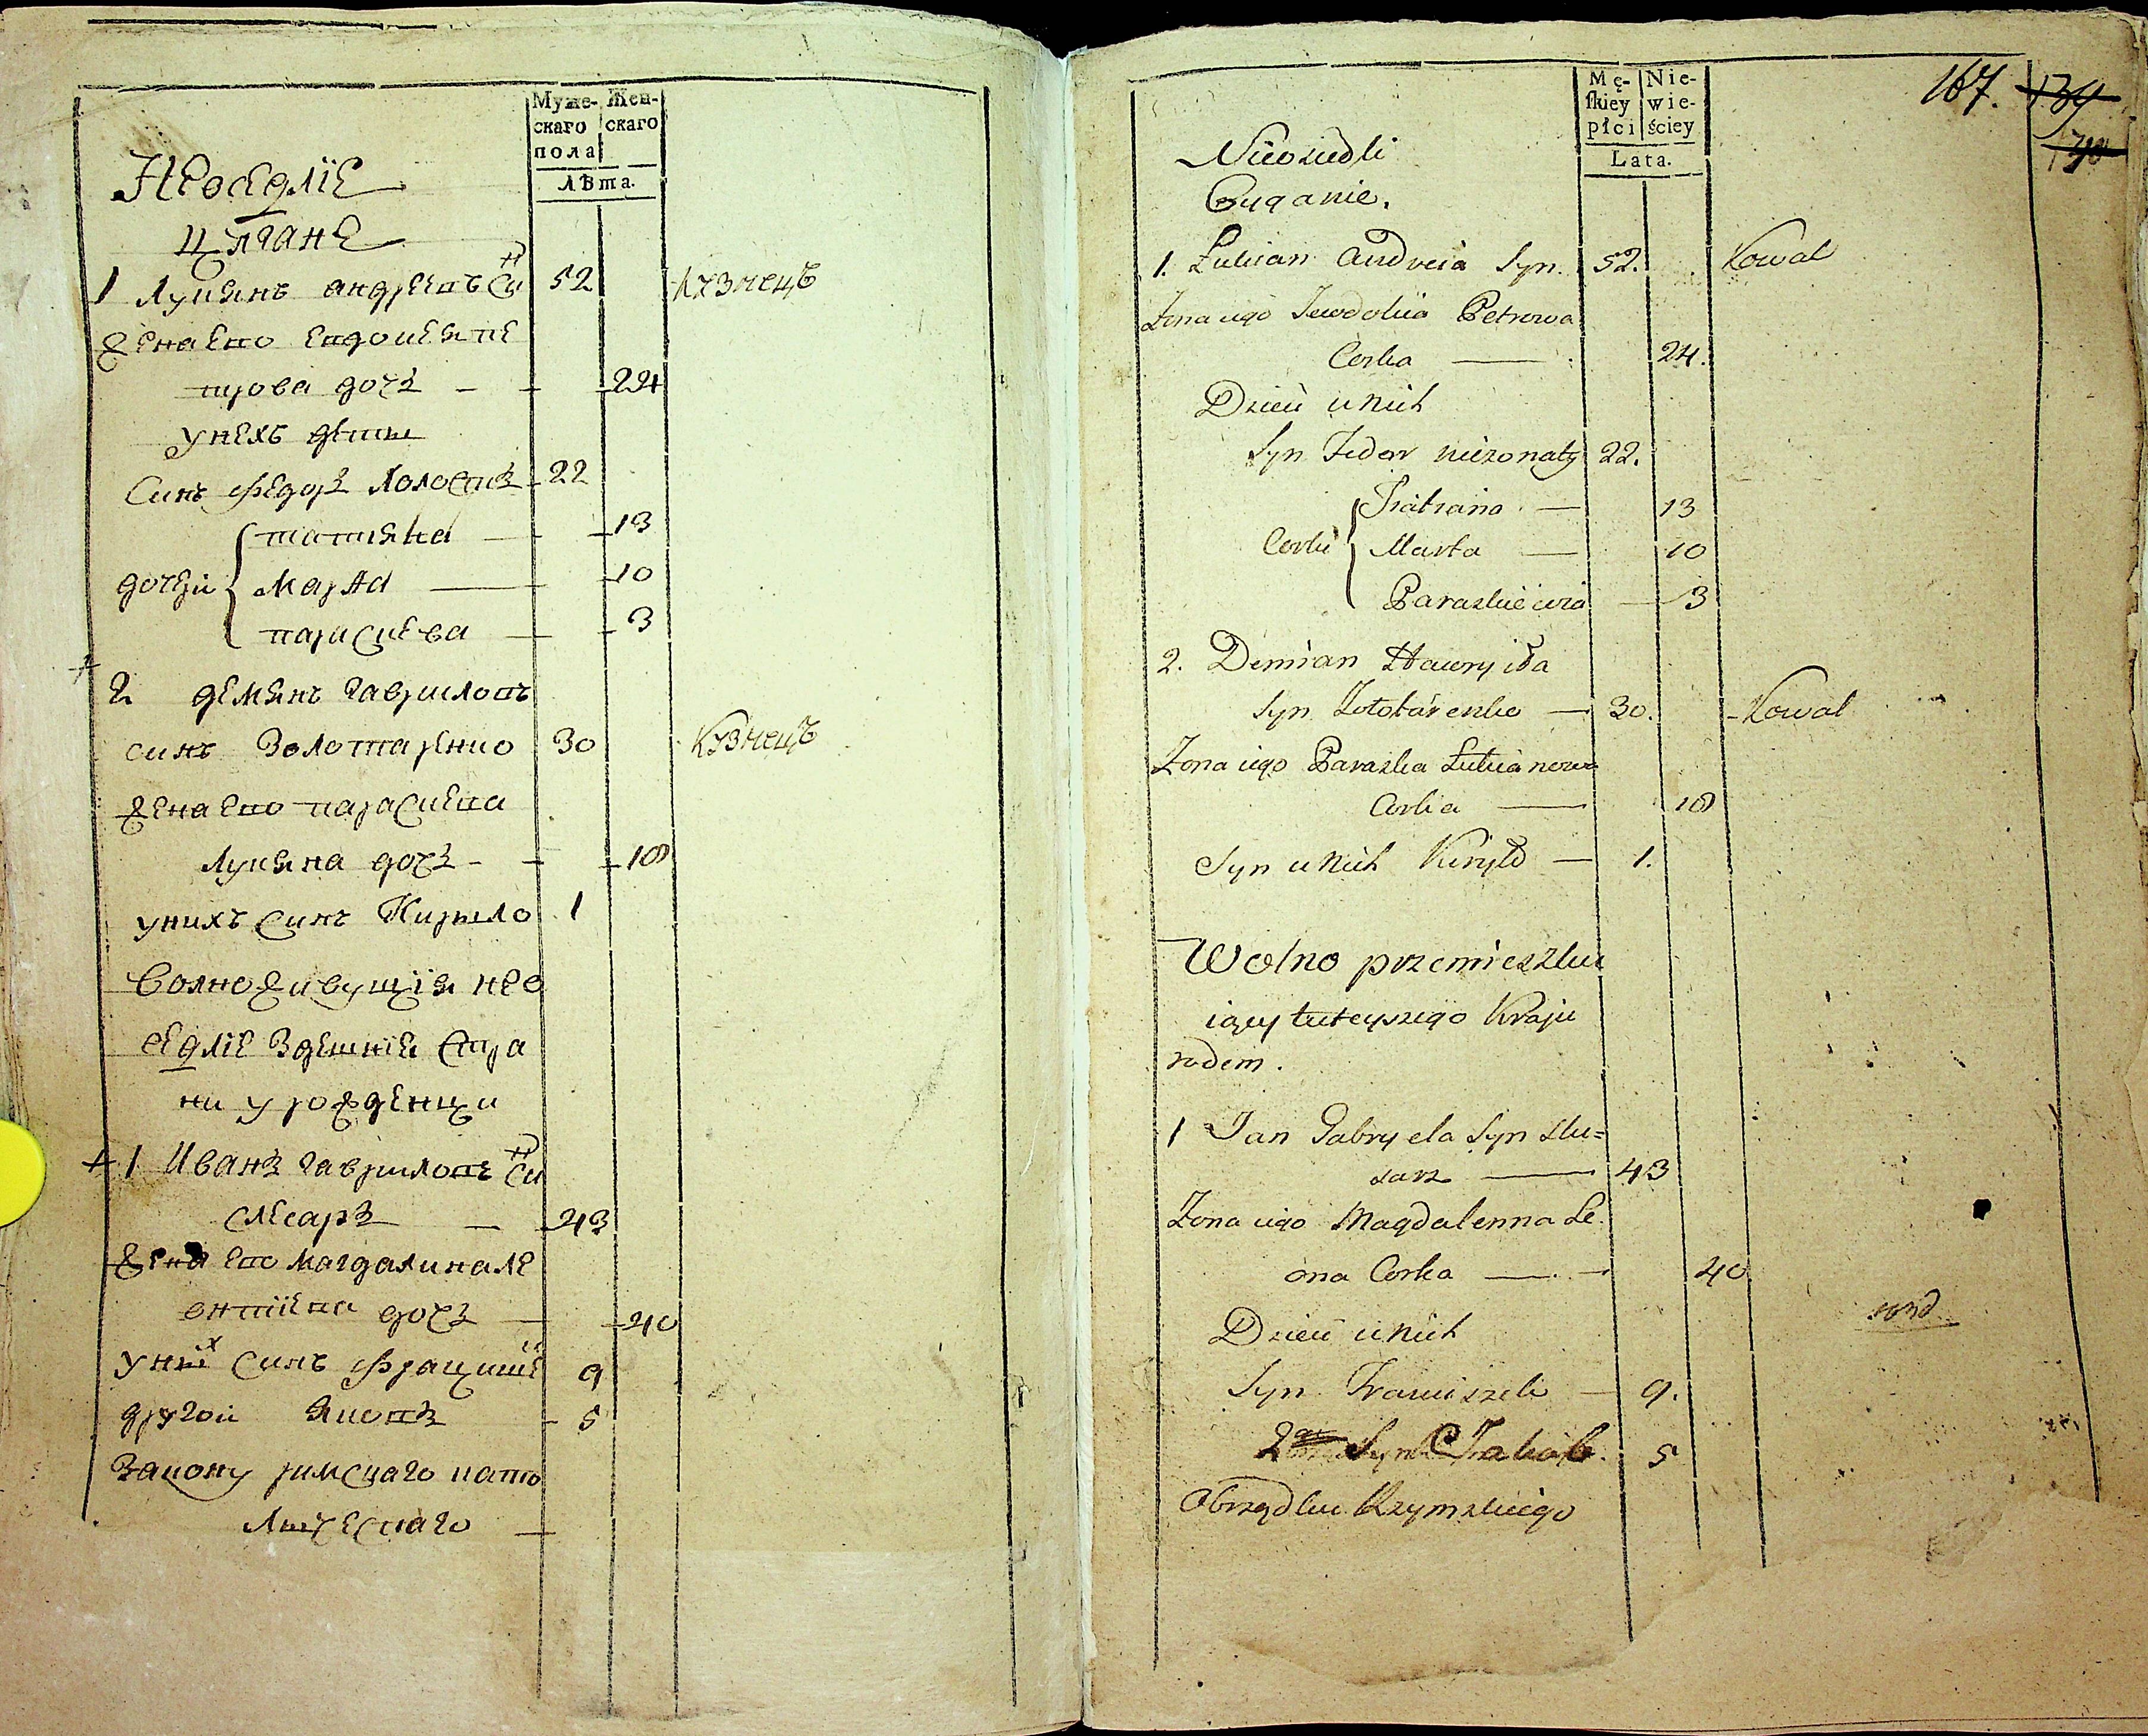 Муже- Жен-
скаго скаго
пола
лѣта.
Неоседліе
цигане
1 Лукянъ андреевъ Сн 52 кузнецъ
жена ево евдокея пе
трова дочъ 24
унехъ дети
Синъ Федоръ холостъ 22
татияна 13
дочери Марѳа 10
параскева 3
2 демянъ гавриловъ
синъ Золотаренко 30 кузнецъ
жена ево параскева
лукяна дочъ 18
унихъ синъ Кирило 1
волноживущія нео
седліе здешнія стра
ни урожденци
+ 1 Иванъ гавриловъ Сн
слесаръ 43
жена ево магдалина ле
онтиева дочъ 40
уних синъ Францише 9
другой яковъ 5
закону римскаго като
лическаго
Mę- Nie-
skiey wie-
płci ściey
Lata.
167. 139
170
Nieosiedli
Cyganie.
1. Lukian Andreia Syn. 52. Kowal
Zona iego Iewdokiia Petrowa
Corka 24.
Dzieci u nich
Syn Fedor nieżonaty 22.
Tatiana 13
Corki Marta 10
Paraskiewia 3
2. Demian Hawryiła
Syn Zołotarenko 30. Kowal
Zona iego Paraska Lukianowa
Corka 18
Syn u nich Kiryło 1.
Wolno przemieszku
iący tuteyszego Kraju
rodem.
1 Jan Gabryela Syn Slu=
sarz 43
Zona iego Magdalenna Le
ona Corka 40
Dzieci u nich
Syn Franciszek 9.
2gi Syn Jakób. 5
Obrządku Rzymskiego